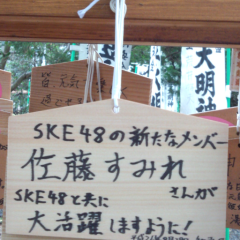 大明神
SKE48の新たなメンバー
佐藤すみれ
さんが
SKE48と共に
大活躍しますように!